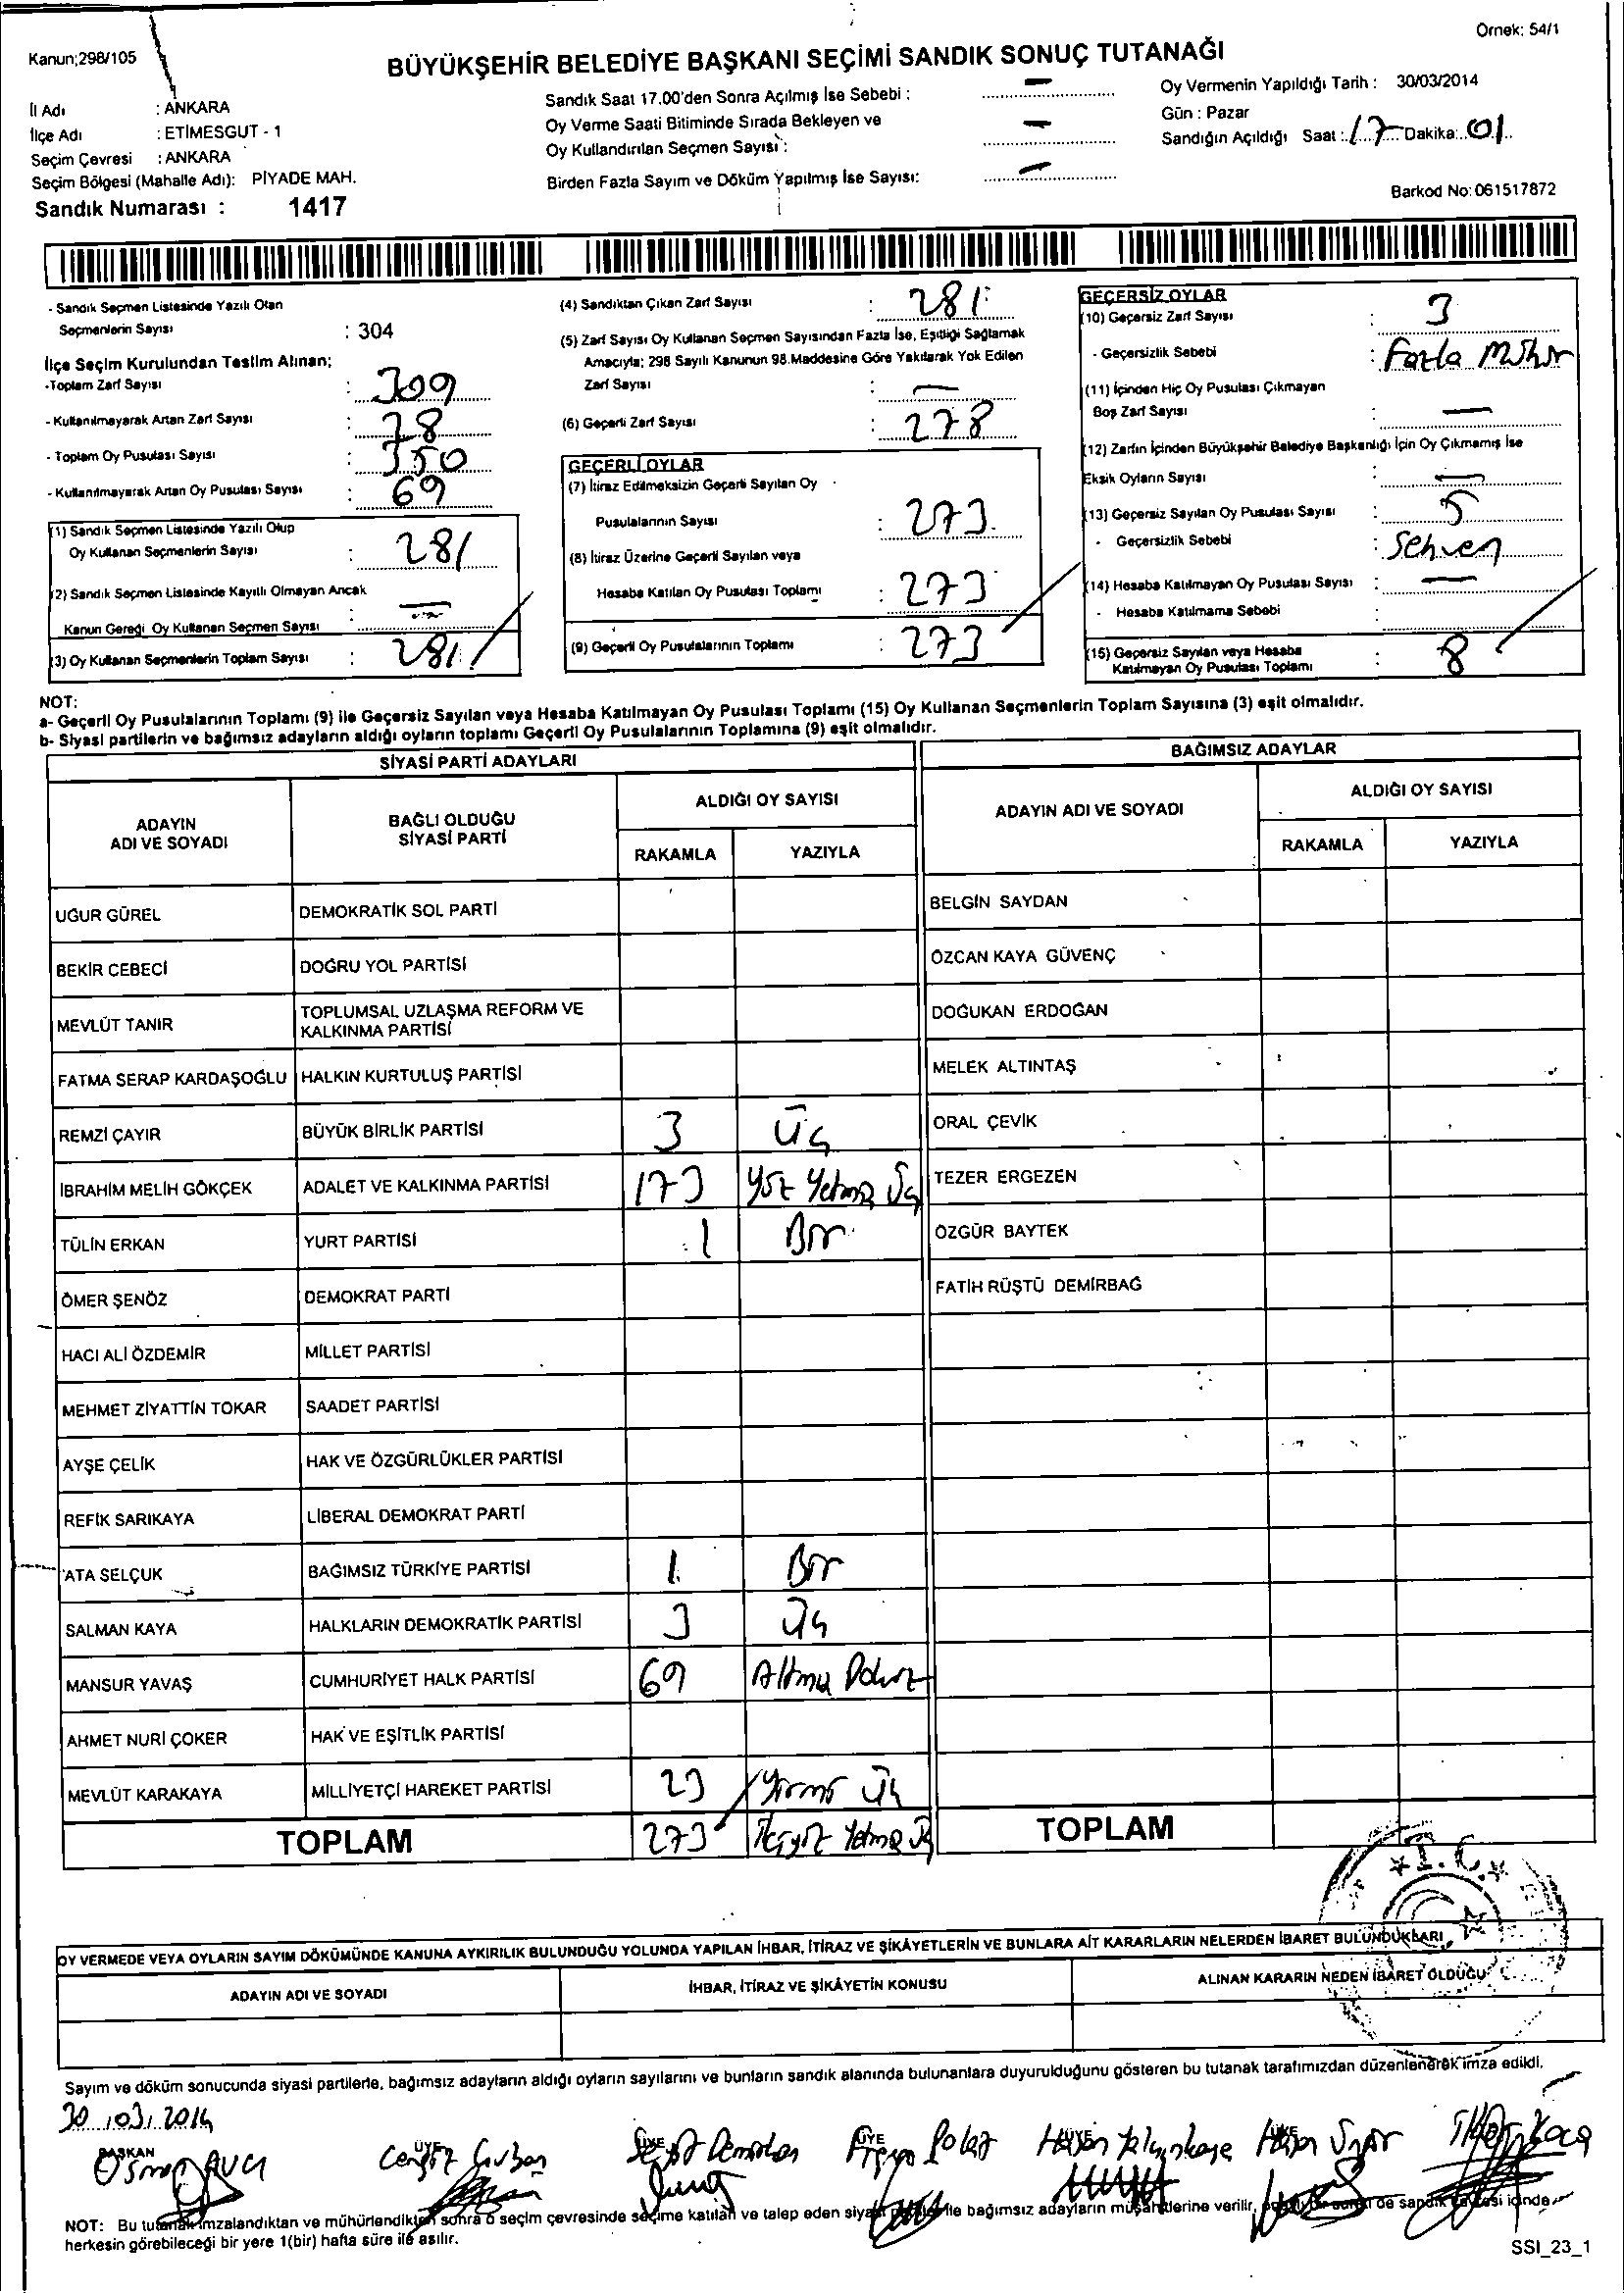 Örnek: 54/1
Kanun;298/105
BÜYÜKŞEHİR BELEDİYE BAŞKANI SEÇİMİ SANDIK SONUÇ TUTANAĞI
İl Adı : ANKARA
İlçe Adı : ETİMESGUT - 1
Seçim Çevresi : ANKARA
Seçim Bölgesi (Mahalle Adı): PİYADE MAH.
Sandık Numarası : 1417
Sandık Saat 17.00'den Sonra Açılmış İse Sebebi : —
Oy Verme Saati Bitiminde Sırada Bekleyen ve
Oy Kullandırılan Seçmen Sayısı : —
Birden Fazla Sayım ve Döküm Yapılmış İse Sayısı: —
Oy Vermenin Yapıldığı Tarih : 30/03/2014
Gün : Pazar
Sandığın Açıldığı Saat : 17 Dakika: 01
Barkod No: 061517872
- Sandık Seçmen Listesinde Yazılı Olan
Seçmenlerin Sayısı : 304
İlçe Seçim Kurulundan Teslim Alınan;
-Toplam Zarf Sayısı : 309
- Kullanılmayarak Artan Zarf Sayısı : 28
- Toplam Oy Pusulası Sayısı : 350
- Kullanılmayarak Artan Oy Pusulası Sayısı : 69
(1) Sandık Seçmen Listesinde Yazılı Olup
Oy Kullanan Seçmenlerin Sayısı : 281
(2) Sandık Seçmen Listesinde Kayıtlı Olmayan Ancak
Kanun Gereği Oy Kullanan Seçmen Sayısı : —
(3) Oy Kullanan Seçmenlerin Toplam Sayısı : 281
(4) Sandıktan Çıkan Zarf Sayısı : 281
(5) Zarf Sayısı Oy Kullanan Seçmen Sayısından Fazla İse, Eşitliği Sağlamak
Amacıyla; 298 Sayılı Kanunun 98.Maddesine Göre Yakılarak Yok Edilen
Zarf Sayısı : —
(6) Geçerli Zarf Sayısı : 278
GEÇERLİ OYLAR
(7) İtiraz Edilmeksizin Geçerli Sayılan Oy
Pusulalarının Sayısı : 273
(8) İtiraz Üzerine Geçerli Sayılan veya
Hesaba Katılan Oy Pusulası Toplamı : 273
(9) Geçerli Oy Pusulalarının Toplamı : 273
GEÇERSİZ OYLAR
(10) Geçersiz Zarf Sayısı : 3
- Geçersizlik Sebebi : Fazla Mühür
(11) İçinden Hiç Oy Pusulası Çıkmayan
Boş Zarf Sayısı : —
(12) Zarfın İçinden Büyükşehir Belediye Başkanlığı İçin Oy Çıkmamış İse
Eksik Oyların Sayısı : —
(13) Geçersiz Sayılan Oy Pusulası Sayısı : 5
- Geçersizlik Sebebi : Sehven
(14) Hesaba Katılmayan Oy Pusulası Sayısı : —
- Hesaba Katılmama Sebebi :
(15) Geçersiz Sayılan veya Hesaba
Katılmayan Oy Pusulası Toplamı : 8
NOT:
a- Geçerli Oy Pusulalarının Toplamı (9) ile Geçersiz Sayılan veya Hesaba Katılmayan Oy Pusulası Toplamı (15) Oy Kullanan Seçmenlerin Toplam Sayısına (3) eşit olmalıdır.
b- Siyasi partilerin ve bağımsız adayların aldığı oyların toplamı Geçerli Oy Pusulalarının Toplamına (9) eşit olmalıdır.
SİYASİ PARTİ ADAYLARI
ADAYIN ADI VE SOYADI BAĞLI OLDUĞU SİYASİ PARTİ ALDIĞI OY SAYISI
RAKAMLA YAZIYLA
UĞUR GÜREL DEMOKRATİK SOL PARTİ
BEKİR CEBECİ DOĞRU YOL PARTİSİ
MEVLÜT TANIR TOPLUMSAL UZLAŞMA REFORM VE KALKINMA PARTİSİ
FATMA SERAP KARDAŞOĞLU HALKIN KURTULUŞ PARTİSİ
REMZİ ÇAYIR BÜYÜK BİRLİK PARTİSİ 3 Üç
İBRAHİM MELİH GÖKÇEK ADALET VE KALKINMA PARTİSİ 173 Yüz Yetmiş Üç
TÜLİN ERKAN YURT PARTİSİ 1 Bir
ÖMER ŞENÖZ DEMOKRAT PARTİ
HACI ALİ ÖZDEMİR MİLLET PARTİSİ
MEHMET ZİYATTİN TOKAR SAADET PARTİSİ
AYŞE ÇELİK HAK VE ÖZGÜRLÜKLER PARTİSİ
REFİK SARIKAYA LİBERAL DEMOKRAT PARTİ
ATA SELÇUK BAĞIMSIZ TÜRKİYE PARTİSİ 1 Bir
SALMAN KAYA HALKLARIN DEMOKRATİK PARTİSİ 3 Üç
MANSUR YAVAŞ CUMHURİYET HALK PARTİSİ 69 Altmış Dokuz
AHMET NURİ ÇOKER HAK VE EŞİTLİK PARTİSİ
MEVLÜT KARAKAYA MİLLİYETÇİ HAREKET PARTİSİ 23 Yirmi Üç
TOPLAM 273 İkiyüz Yetmiş Üç
BAĞIMSIZ ADAYLAR
ADAYIN ADI VE SOYADI ALDIĞI OY SAYISI
RAKAMLA YAZIYLA
BELGİN SAYDAN
ÖZCAN KAYA GÜVENÇ
DOĞUKAN ERDOĞAN
MELEK ALTINTAŞ
ORAL ÇEVİK
TEZER ERGEZEN
ÖZGÜR BAYTEK
FATİH RÜŞTÜ DEMİRBAĞ
TOPLAM
T.C.
OY VERMEDE VEYA OYLARIN SAYIM DÖKÜMÜNDE KANUNA AYKIRILIK BULUNDUĞU YOLUNDA YAPILAN İHBAR, İTİRAZ VE ŞİKÂYETLERİN VE BUNLARA AİT KARARLARIN NELERDEN İBARET BULUNDUKLARI
ADAYIN ADI VE SOYADI İHBAR, İTİRAZ VE ŞİKÂYETİN KONUSU ALINAN KARARIN NEDEN İBARET OLDUĞU
Sayım ve döküm sonucunda siyasi partilerle, bağımsız adayların aldığı oyların sayılarını ve bunların sandık alanında bulunanlara duyurulduğunu gösteren bu tutanak tarafımızdan düzenlenerek imza edildi.
30.03.2014
BAŞKAN ÜYE ÜYE ÜYE ÜYE ÜYE
Osman AVCI Cengiz Demirhan Polat Hasan Yalçınkaya Hasan
NOT: Bu tutanak imzalandıktan ve mühürlendikten sonra o seçim çevresinde seçime katılan ve talep eden siyasi partiler ile bağımsız adayların müşahitlerine verilir, de sandık çevresi içinde
herkesin görebileceği bir yere 1(bir) hafta süre ile asılır.
SSI_23_1